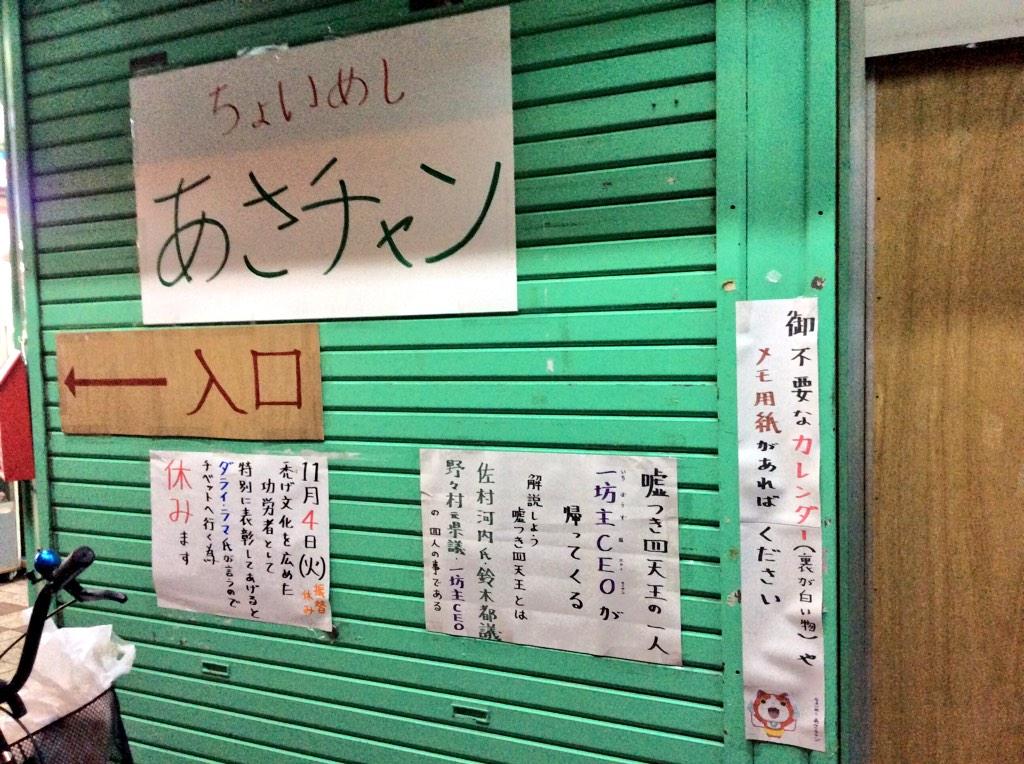 ちょいめし
あさチャン
入口
11月4日(火)振替休み
禿げ文化を広めた
功労者として
特別に表彰してあげると
ダライ・ラマ氏が言うので
チベットへ行く為
休みます
嘘つき四天王の一人
一坊主CEOが
帰ってくる
解説しよう
嘘つき四天王とは
佐村河内氏・鈴木都議
野々村元県議・一坊主CEO
の四人の事である
御不要なカレンダー(裏が白い物)や
メモ用紙があればください